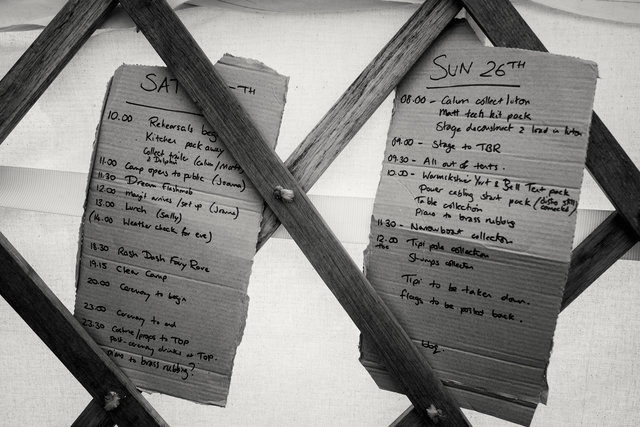 SAT -TH
10.00 Rehearsals beg
Kitchen pack away
Collect trailer (Calum/Matt)
& Dolphin
11.00 Camp opens to public (Joanna)
11.30 Dream Flashmob
12.00 arrives/set up (Joanna)
13.00 Lunch (Sally)
(14.00 Weather check for eve)
18.30 Rash Dash Fairy Rave
19.15 Clear Camp
20.00 Ceremony to begin
23.00 Ceremony to end
23.30 Costume/props to TOP
post-ceremony drinks at TOP.
piano to brass rubbing?
SUN 26TH
08.00 - Calum collect luton
Matt tech kit pack
Stage deconstruct & load in luton
09.00 - Stage to TBR
09.30 - All out of tents.
10.00 - Warwickshire Yurt & Bell Tent pack
Power cabling start pack (distro still connected)
Table collection
Piano to brass rubbing
11.30 - Narrowboat collection
12.00 Tipi pole collection
Stumps collection
Tipi to be taken down.
flags to be posted back.
bbq.